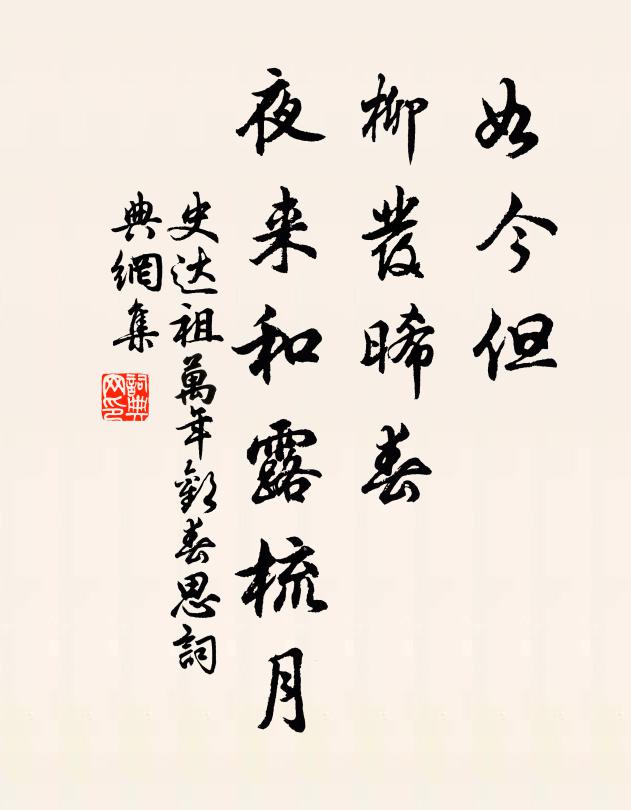 如今但
柳發晞春
夜来和露梳月
史达祖萬年歡春思詞
典網集
詞典
网印